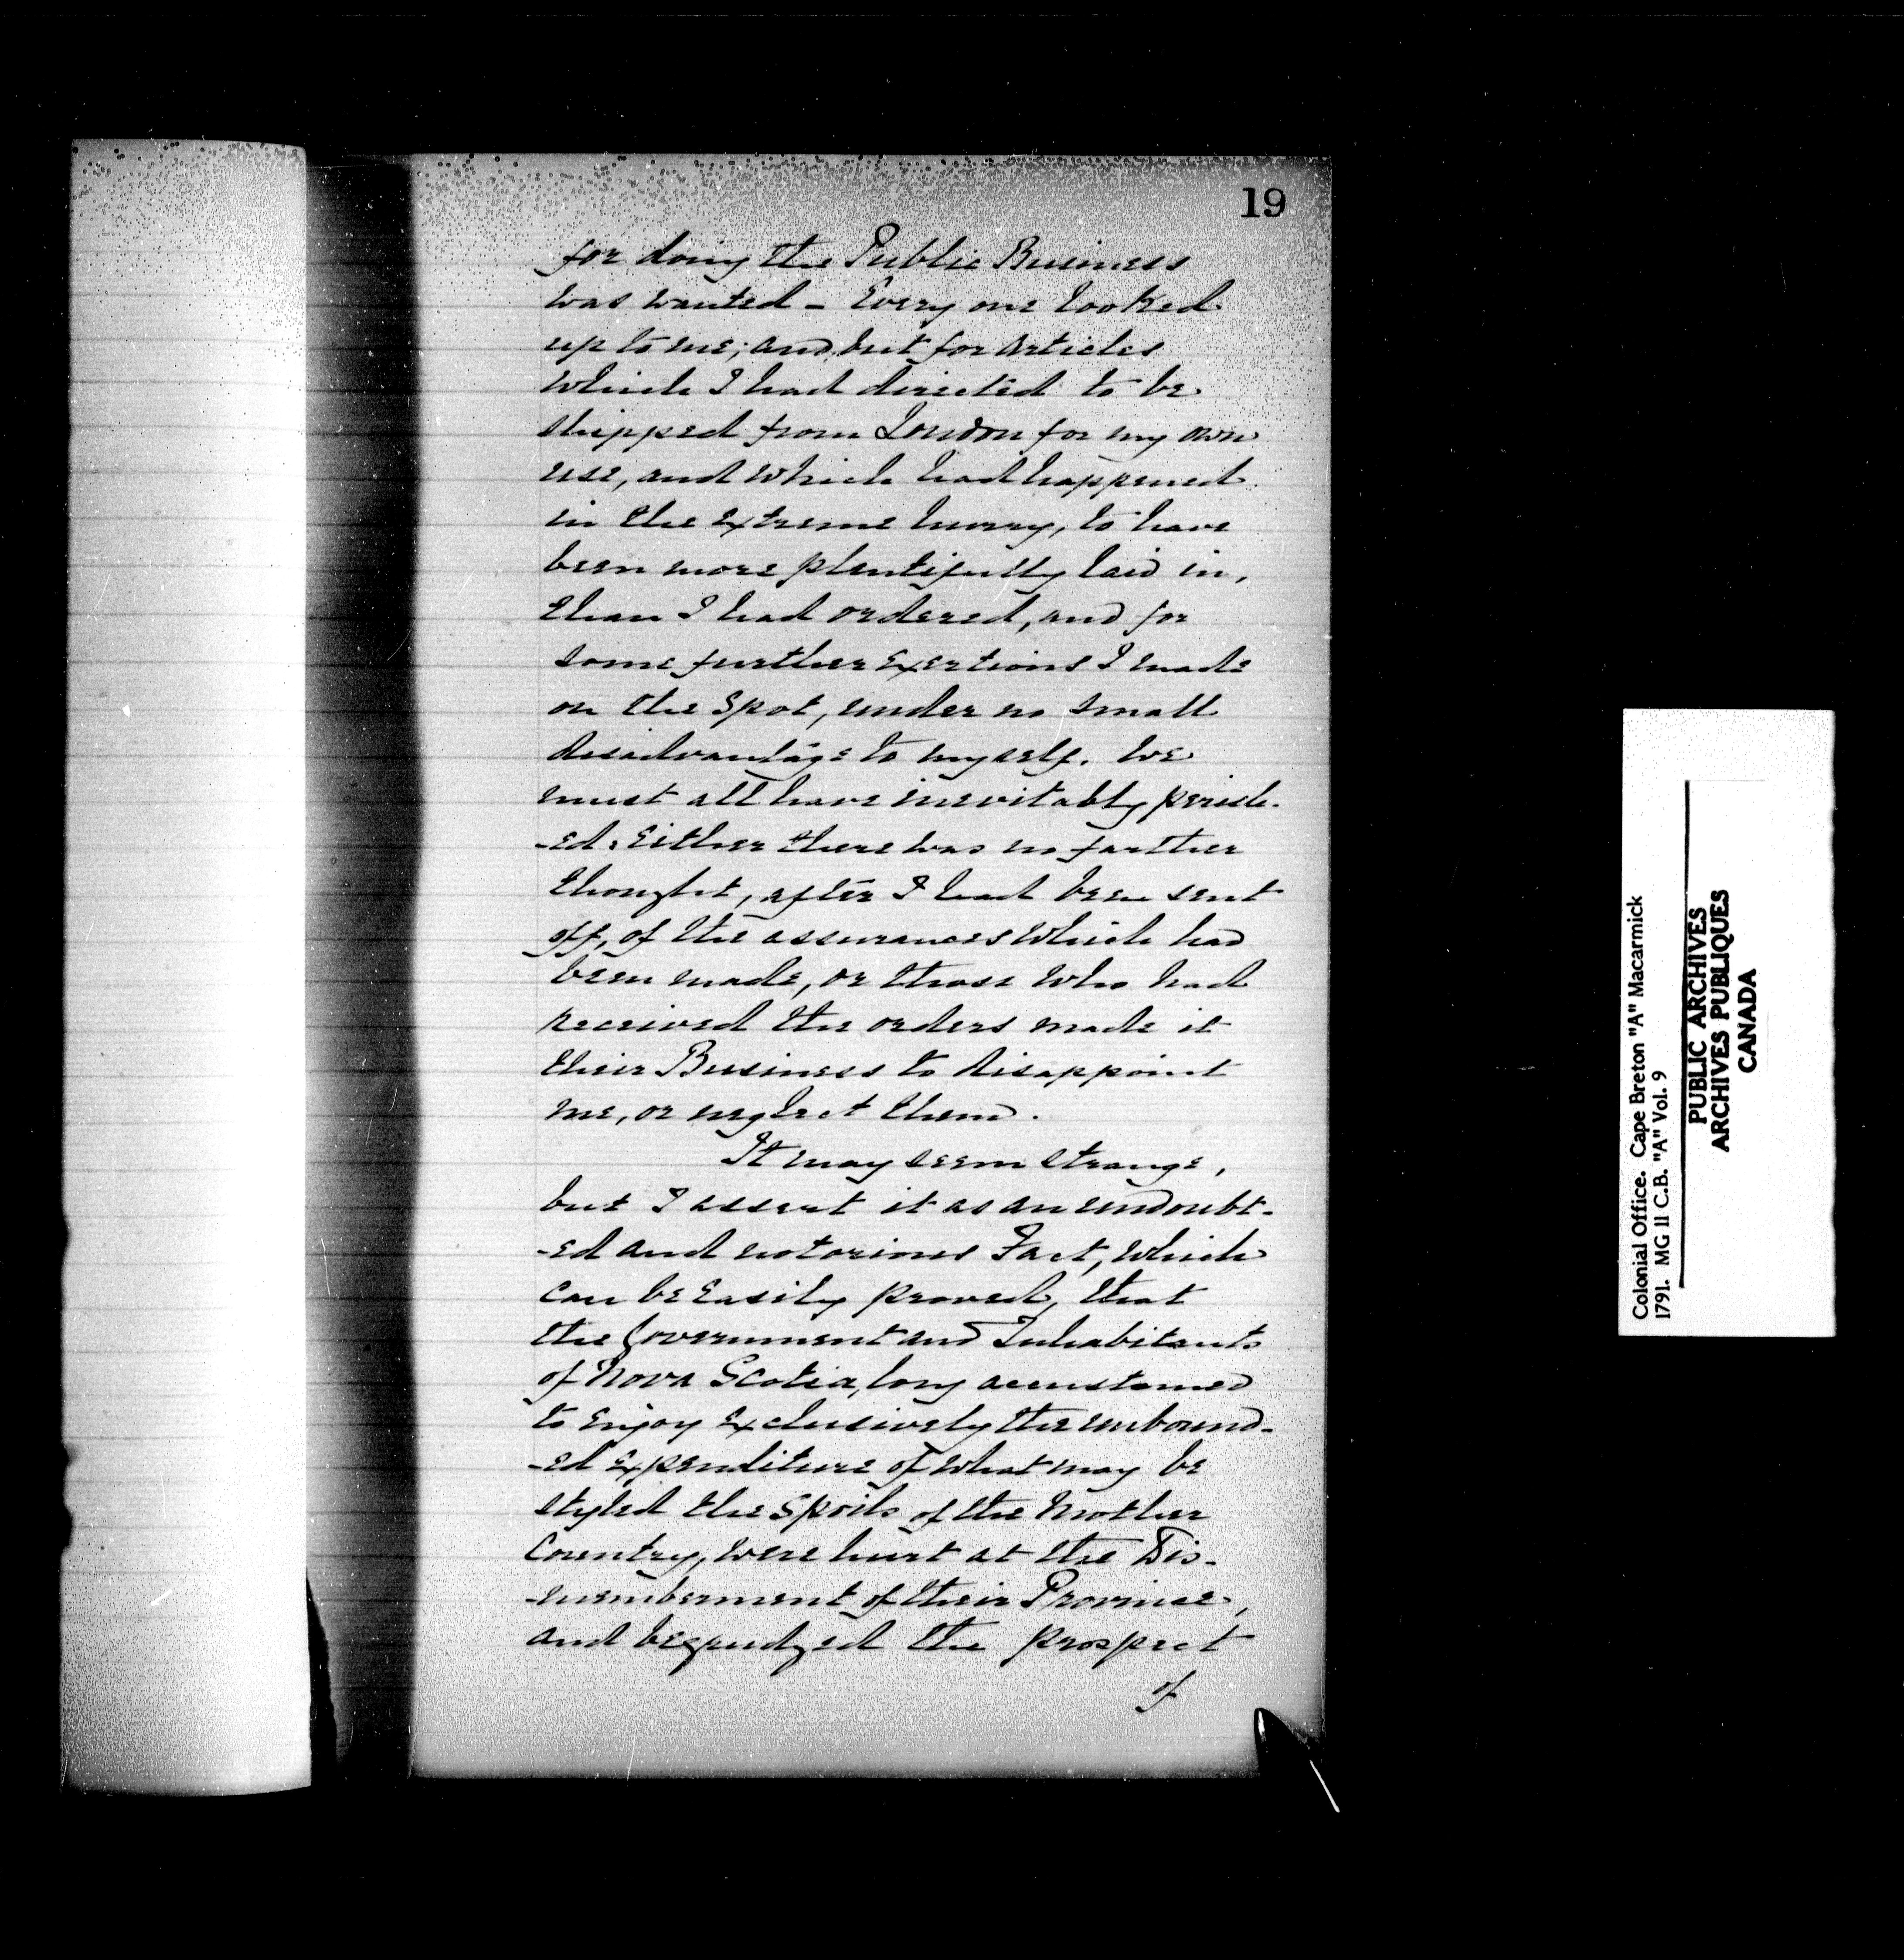 19
for doing the Public Business
was wanted – Every one looked
up to me; and but for articles
which I had directed to be
shipped from London for my own
use, and which had happened
in the extreme hurry, to have
been more plentifully laid in,
than I had ordered, and for
some further Exertions I made
on the Spot, under no small
disadvantage to myself. We
must all have inevitably perish-
-ed: Either there was no farther
thought, after I had been sent
off, of the assurances which had
been made, or those who had
received the orders made it
their Business to disappoint
me, or neglect them.
It may seem strange,
but I assert it as an undoubt-
-ed and notorious Fact, which
can be Easily proved, that
the Government and Inhabitants
of Nova Scotia, long accustomed
to enjoy Exclusively the unbound-
-ed Expenditure of what may be
styled the Spoils of the Mother
Country, were hurt at the Dis-
-memberment of their Province,
and begrudged the prospect
of
Colonial Office. Cape Breton "A" Macarmick
1791. MG 11 C.B. "A" Vol. 9
PUBLIC ARCHIVES
ARCHIVES PUBLIQUES
CANADA